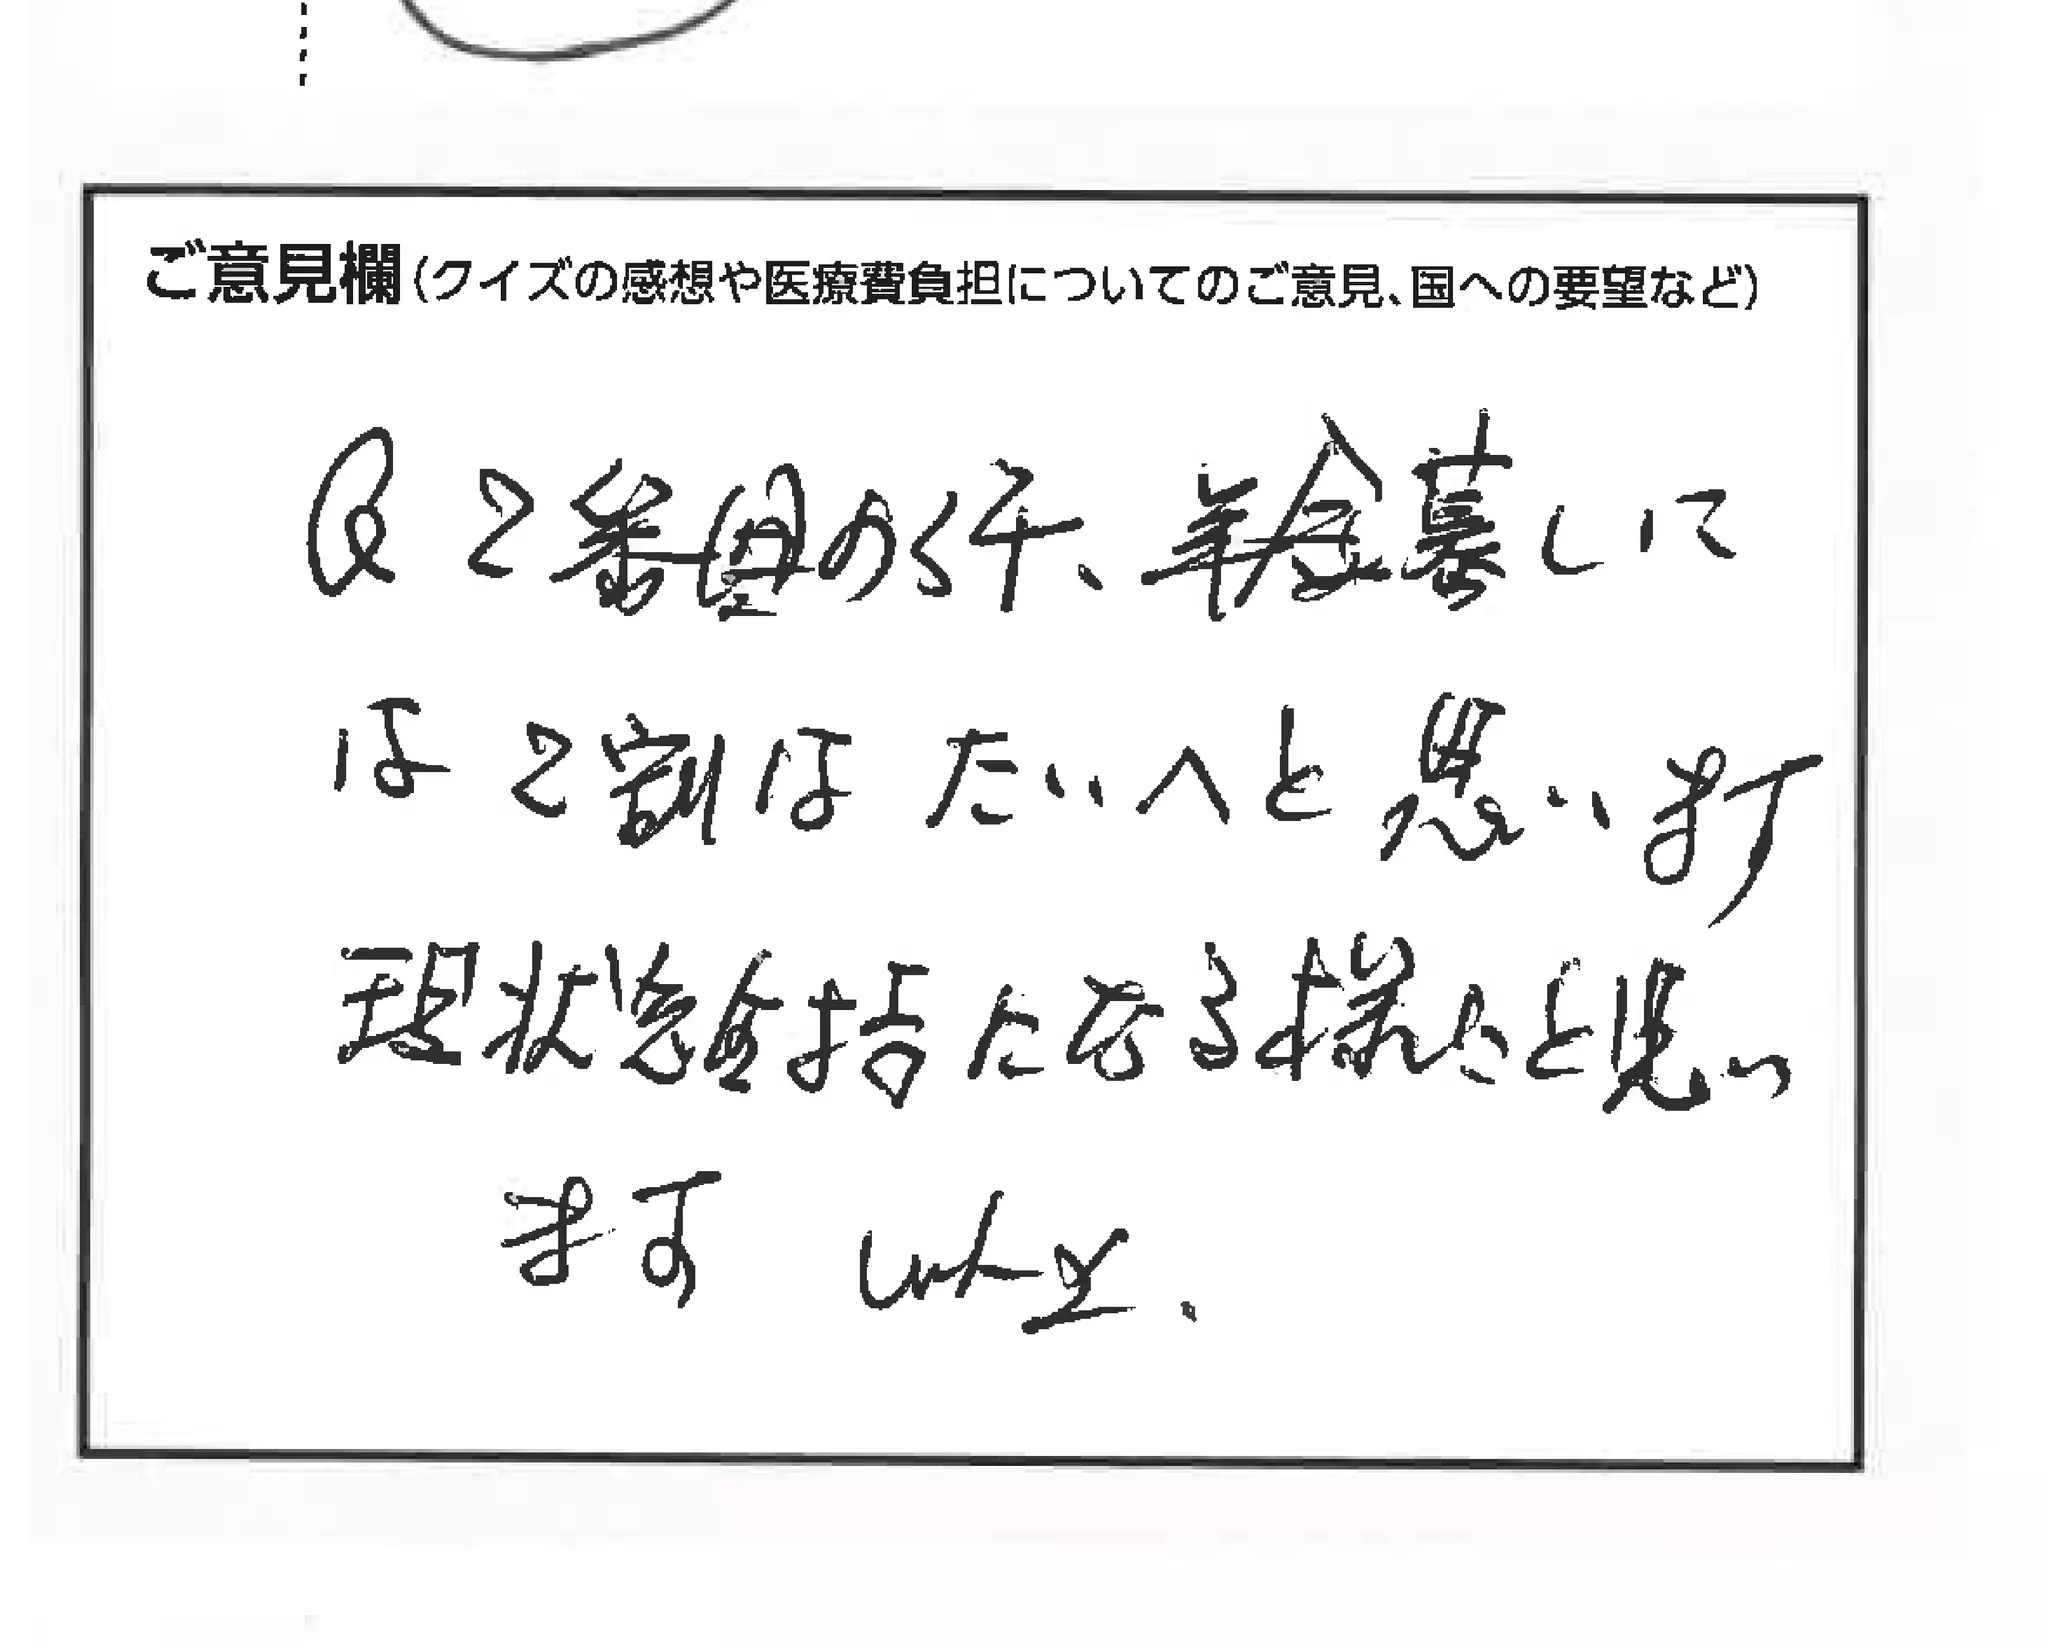 ご意見欄(クイズの感想や医療費負担についてのご意見、国への要望など)
Q2番目の件、年金暮しに
は2割はたいへと思います
現状維持になる様にと思い
ます